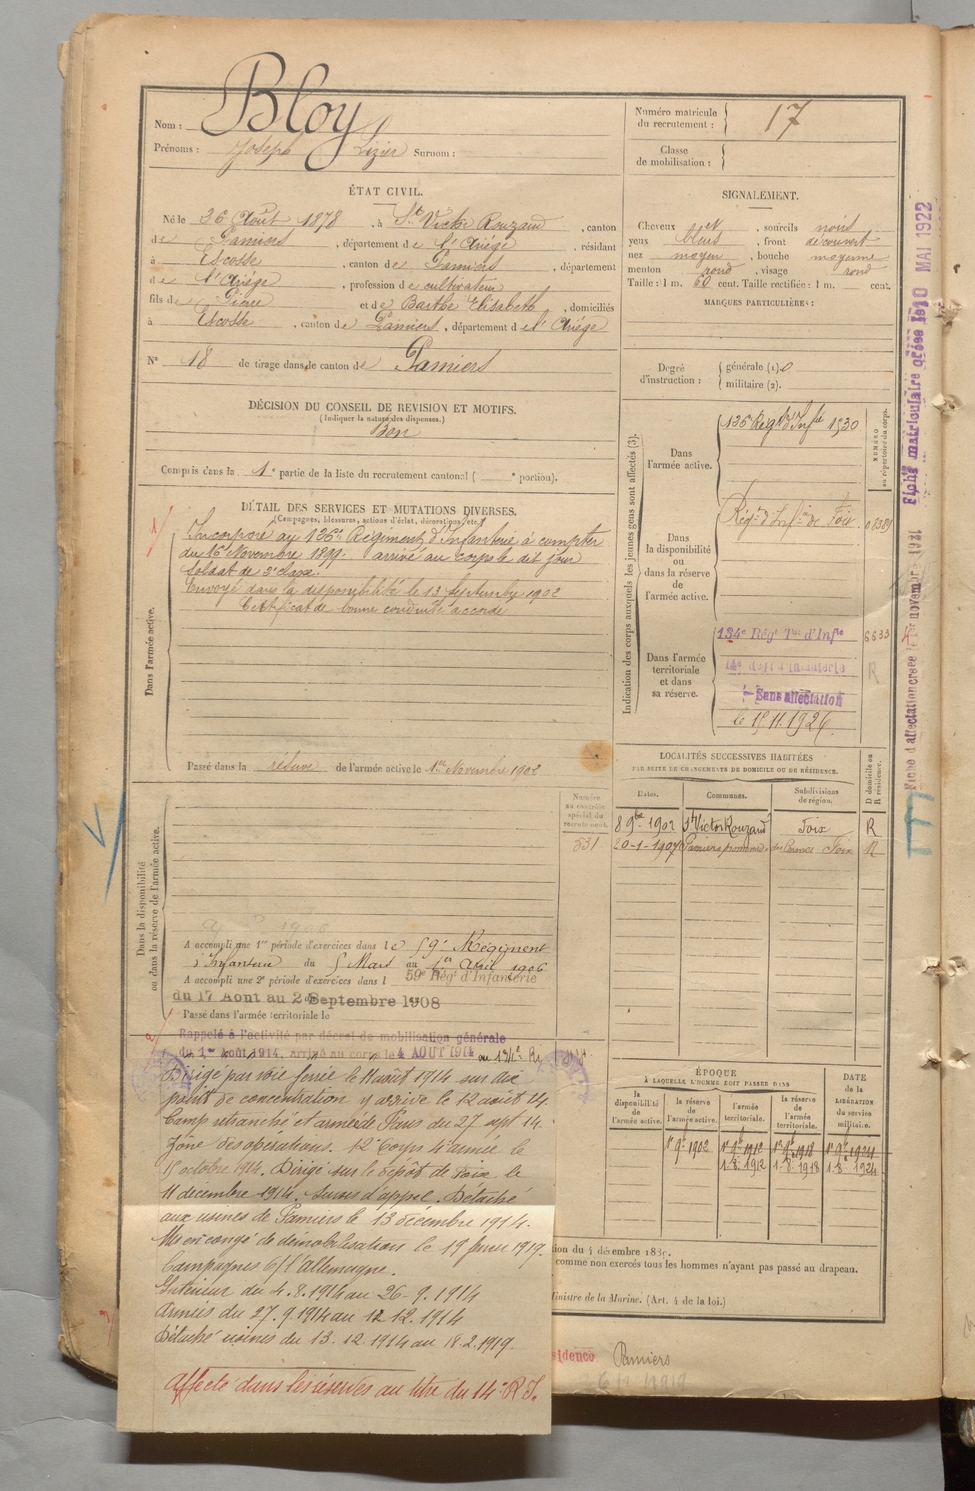 Nom : Bloy
Prénoms : Joseph Lizier Surnom :
ÉTAT CIVIL.
Né le 26 Août 1878, à St Victor Rouzaud, canton
de Pamiers, département de l'Ariège, résidant
à Escosse, canton de Pamiers, département
de l'Ariège, profession de cultivateur
fils de Pierre et de Barthe Elisabeth, domiciliés
à Escosse, canton de Pamiers, département de l'Ariège
N° 18 de tirage dans le canton de Pamiers
DÉCISION DU CONSEIL DE REVISION ET MOTIFS.
(Indiquer la nature des dispenses.)
Bon
Compris dans la 1e partie de la liste du recrutement cantonal ( e portion).
DÉTAIL DES SERVICES ET MUTATIONS DIVERSES.
(Campagnes, blessures, actions d'éclat, décorations, etc.)
Dans l'armée active.
Incorporé au 136e Régiment d'Infanterie à compter
du 16 Novembre 1899 arrivé au corps le dit jour
Soldat de 2e classe.
Envoyé dans la disponibilité le 13 Septembre 1902
Certificat de bonne conduite accordé
Passé dans la réserve de l'armée active le 1er Novembre 1902
Dans la disponibilité
ou dans la réserve de l'armée active.
A accompli une 1re période d'exercices dans le 59e Régiment
d'Infanterie du 5 Mars au 1er Avril 1906
A accompli une 2e période d'exercices dans l 59e Rég' d'Infanterie
du 17 Août au 2 Septembre 1908
Passé dans l'armée territoriale le
Rappelé à l'activité par décret de mobilisation générale
du 1er Août 1914, arrivé au corps le 4 AOUT 1914 au 134e Rt
Dirigé par voie ferrée le 11 août 1914 sur dix
point de concentration y arrive le 12 août 14.
Camp retranché et armée de Paris du 27 sept 14.
Zône des opérations. 12e Corps 4e armée le
15 octobre 1914. Dirigé sur le dépôt de Foix le
11 décembre 1914. Sursis d'appel. Détaché
aux usines de Pamiers le 13 décembre 1914.
Mis en congé de démobilisation le 19 février 1919.
Campagnes c/ l'Allemagne.
Intérieur du 4.8.1914 au 26.9.1914
Armées du 27.9.1914 au 12 12.1914
Détaché usines du 13.12.1914 au 18.2.1919.
Affecté dans les réserves au titre du 14e R.I.
Numéro matricule
du recrutement : 17
Classe
de mobilisation :
SIGNALEMENT.
Cheveux et, sourcils noirs
yeux bleus, front découvert
nez moyen, bouche moyenne
menton rond, visage rond
Taille : 1 m. 60 cent. Taille rectifiée : 1 m. cent.
MARQUES PARTICULIÈRES :
Degré
d'instruction :
générale (1) 0
militaire (2).
Indication des corps auxquels les jeunes gens sont affectés (3).
NUMÉRO
au répertoire du corps.
Dans
l'armée active.
136e Régt d'Infie 1530
Dans
la disponibilité
ou
dans la réserve
de
l'armée active.
Régt d'Infie de Foix.
Dans l'armée
territoriale
et dans
sa réserve.
134e Rég' Ter d'Infie 6633
R
Sans affectation
le 15.11.1926
LOCALITÉS SUCCESSIVES HABITÉES
PAR SUITE DE CHANGEMENTS DE DOMICILE OU DE RÉSIDENCE.
Numéro
au contrôle
spécial du
recrutement.
Dates.
Communes.
Subdivisions
de région.
D domicile ou
R résidence.
8 9bre 1902 St Victor Rouzaud Foix R
331 20-1-1907 Pamiers promenade des Carmes Foix R
ÉPOQUE
À LAQUELLE L'HOMME DOIT PASSER DANS
la
disponibilité
de
l'armée active.
la réserve
de
l'armée active.
l'armée
territoriale.
la réserve
de
l'armée
territoriale.
DATE
de la
LIBÉRATION
du service
militaire.
1er 9bre 1902 1er 9bre 1912 1er 9bre 1918 1er 9bre 1924
1.8.1912 1.8.1918 1.8.1924
tion du 4 décembre 188
comme non exercés tous les hommes n'ayant pas passé au drapeau.
Ministre de la Marine. (Art. 4 de la loi.)
sidence Pamiers
Fiche d'affectation créée le novembre 1921
Fiche matriculaire créée le 10 MAI 1922